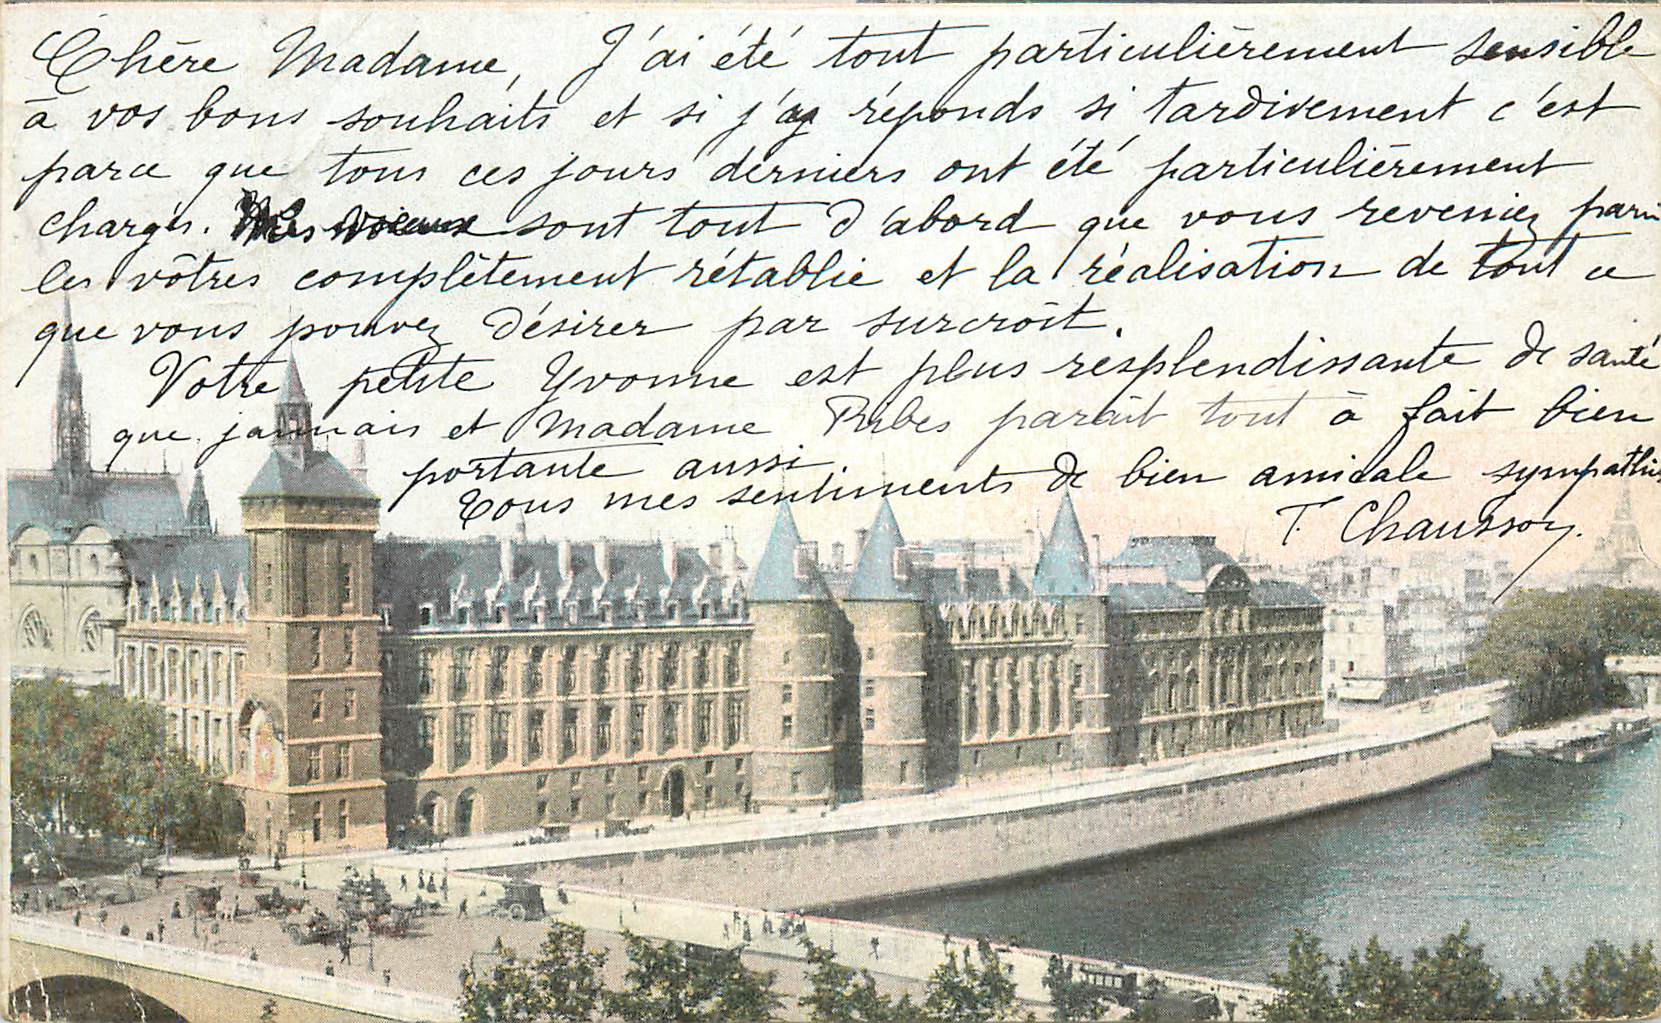 Chère Madame, J'ai été tout particulièrement sensible
à vos bons souhaits et si j'y réponds si tardivement c'est
parce que tous ces jours derniers ont été particulièrement
chargés. Mes voeux sont tout d'abord que vous reveniez parmi
les vôtres complètement rétablie et la réalisation de tout ce
que vous pouvez désirer par surcroît.
Votre petite Yvonne est plus resplendissante de santé
que jamais et Madame Ribes paraît tout à fait bien
portante aussi.
Tous mes sentiments de bien amicale sympathie
T. Chaussoy.